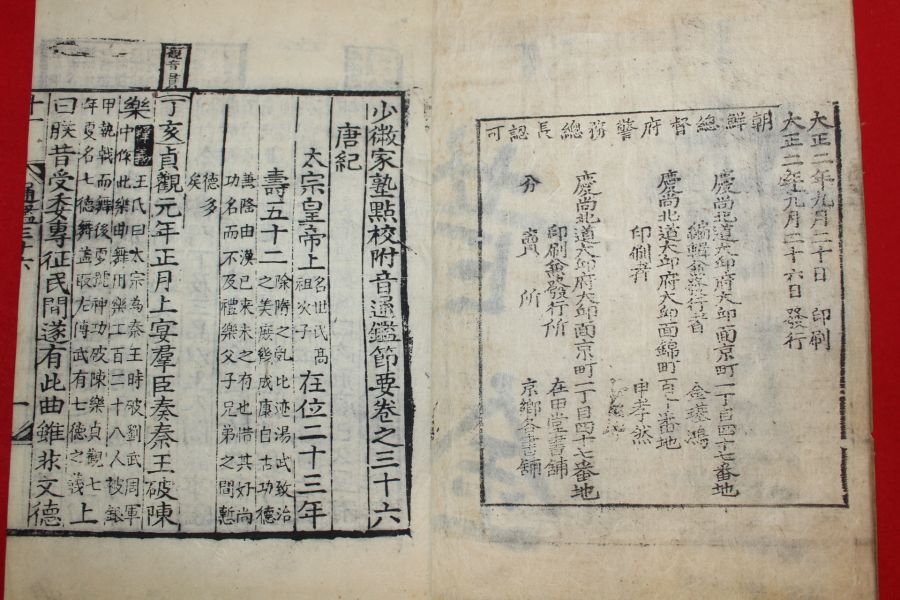 大正二年九月二十日 印刷
大正二年九月二十六日 發行
朝鮮總督府警務總長認可
慶尚北道大邱府大邱面京町一丁目四十七番地
編輯兼發行者 金璂鴻
慶尚北道大邱府大邱面錦町百 番地
印刷者 申孝然
慶尚北道大邱府大邱面京町一丁目四十七番地
印刷兼發行所 在田堂書鋪
分賣所 京鄉各書鋪
少微家塾點校附音通鑑節要卷之三十六
唐紀
太宗皇帝上 名世民高祖次子 在位二十三年
壽五十二 除隋之亂比迹湯武致治之美庶幾成康自古功德
兼隆由漢已來未之有也惜其好尚功名而不及禮樂父子兄弟之間慙
德多矣
丁亥貞觀元年正月上宴羣臣奏秦王破陳
樂 釋義 王氏曰太宗為秦王時破劉武周軍中作此樂曲舞用樂工百二十八人被銀
甲執戟而舞後更號神功破陳樂貞觀七年更名七德舞盖取左傳武有七德之義 上
曰朕昔受委專征民間遂有此曲雖非文德
通鑑三十六
一